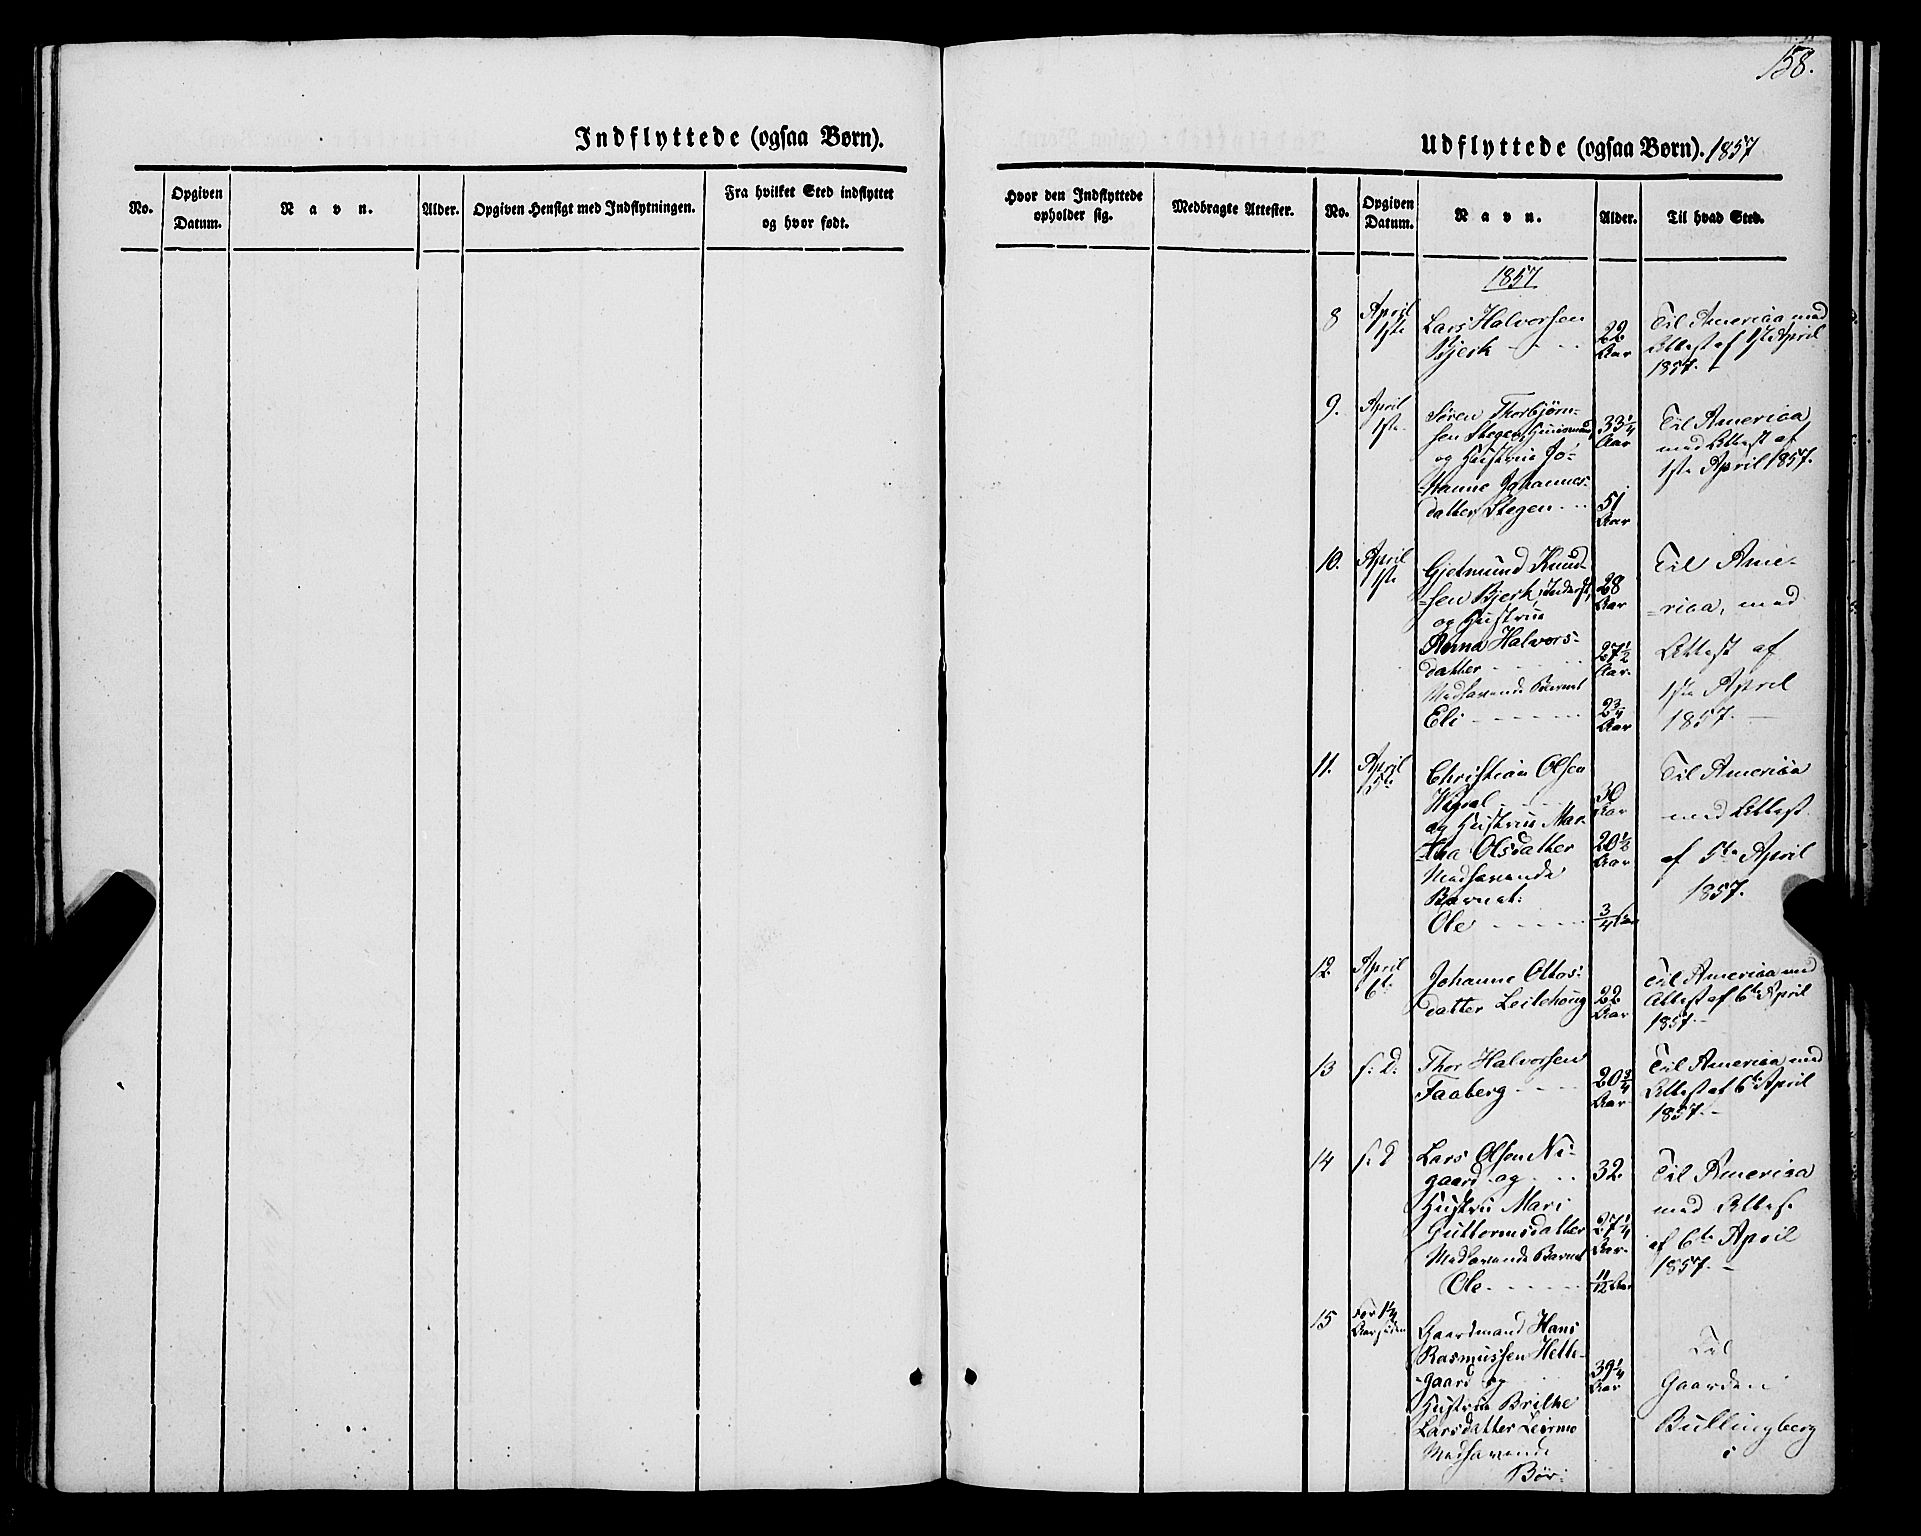 158.
Indflyttede (ogsaa Børn).
No.
Opgiven Datum.
Navn.
Alder.
Opgiven Hensigt med Indflytningen.
Fra hvilket Sted indflyttet
og hvor født.
Udflyttede (ogsaa Børn). 1857
Hvor den Indflyttede
opholder sig.
Medbragte Attester.
No.
Opgiven Datum.
Navn.
Alder.
Til hvad Sted.
1857
8 April 1ste
Lars Halvorsen
Bjerk
22 Aar
Til America med
Attest af 1ste April
1857.
9. April 1ste
Søren Thorbjørn-
sen Stegen, Huusmand,
og Hustrue Jo-
hanne Johannes-
datter Stegen
33 1/4 Aar
51 Aar
Til America
med Attest af
1ste April 1857.
10. April 1ste
Gjetmund Knud-
sen Bjerk, Inderst,
og Hustrue
Anna Halvors-
datter
Medhavende Barnet
Eli
28 Aar
27 1/2 Aar
2 3/4 Aar
Til Ame-
rica, med
Attest af
1ste April
1857.
11. April 5te
Christian Olsen
og Hustrue Mar-
tha Olsdatter
Medhavende
Barnet:
Ole
30 Aar
20 1/2 Aar
3/4 Aar
Til America
med Attest
af 5te April
1857.
12. April 6te
Johanne Ottos-
datter Leilehoug
22 Aar
Til America med
Attest af 6te April
1857.
13 s: D:
Thor Halvorsen
Faaberg
20 3/4 Aar
Til America med
Attest af 6te April
1857.
14 s: D
Lars Olsen Ni-
gaard og
Hustru Mari
Guttormsdatter
Medhavende Barnet
Ole
32
27 1/4 Aar
11/12 Aar
Til America
med Attest
af 6te April
1857.
15 For 1 1/4
Aar siden
Gaardmand Hans
Rasmussen Helle-
gaard og
Hustrue Brithe
Larsdatter Leirmo
Medhavende
Bør:
39 1/4 Aar
Til
Gaarden
Bullingberg
i